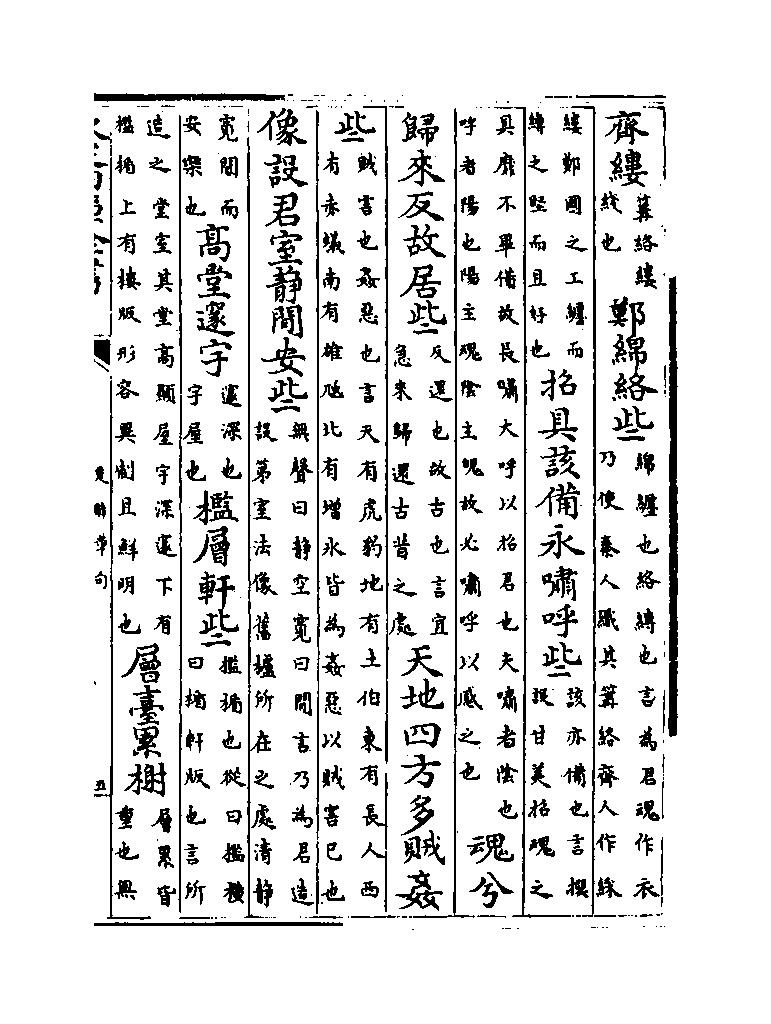 齊縷篝絡縷綫也鄭綿絡些綿纏也絡縛也言為君魂作衣乃使秦人職其篝絡齊人作綵
縷鄭國之工纏而縛之堅而且好也招具該備永嘯呼些該亦備也言撰設甘美招魂之
具靡不畢備故長嘯大呼以招君也夫嘯者陰也呼者陽也陽主魂陰主魄故必嘯呼以感之也魂兮
歸來反故居些反還也故古也言宜急來歸還古昔之處天地四方多賊姦
些賊害也姦惡也言天有虎豹地有土伯東有長人西有赤蟻南有雄虺北有增氷皆為姦惡以賊害已也
像設君室静閒安些無聲曰静空寛曰閒言乃為君造設第室法像舊廬所在之處清静
寛閒而安樂也高堂邃宇邃深也宇屋也檻層軒些檻楯也從曰檻横曰楯軒版也言所
造之堂室其堂高顯屋宇深邃下有檻楯上有樓版形容異制且鮮明也層臺累榭層累皆重也無
楚辭章句
五